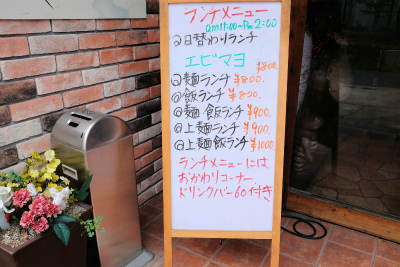 ランチメニュー
am11:00~Pm2:00
@日替わりランチ
エビマヨ ¥800.
@麺ランチ ¥800.
@飯ランチ ¥800.
@麺飯ランチ ¥900.
@上麺ランチ ¥900.
@上麺飯ランチ ¥1000
ランチメニューには
おかわりコーナー
ドリンクバー60付き